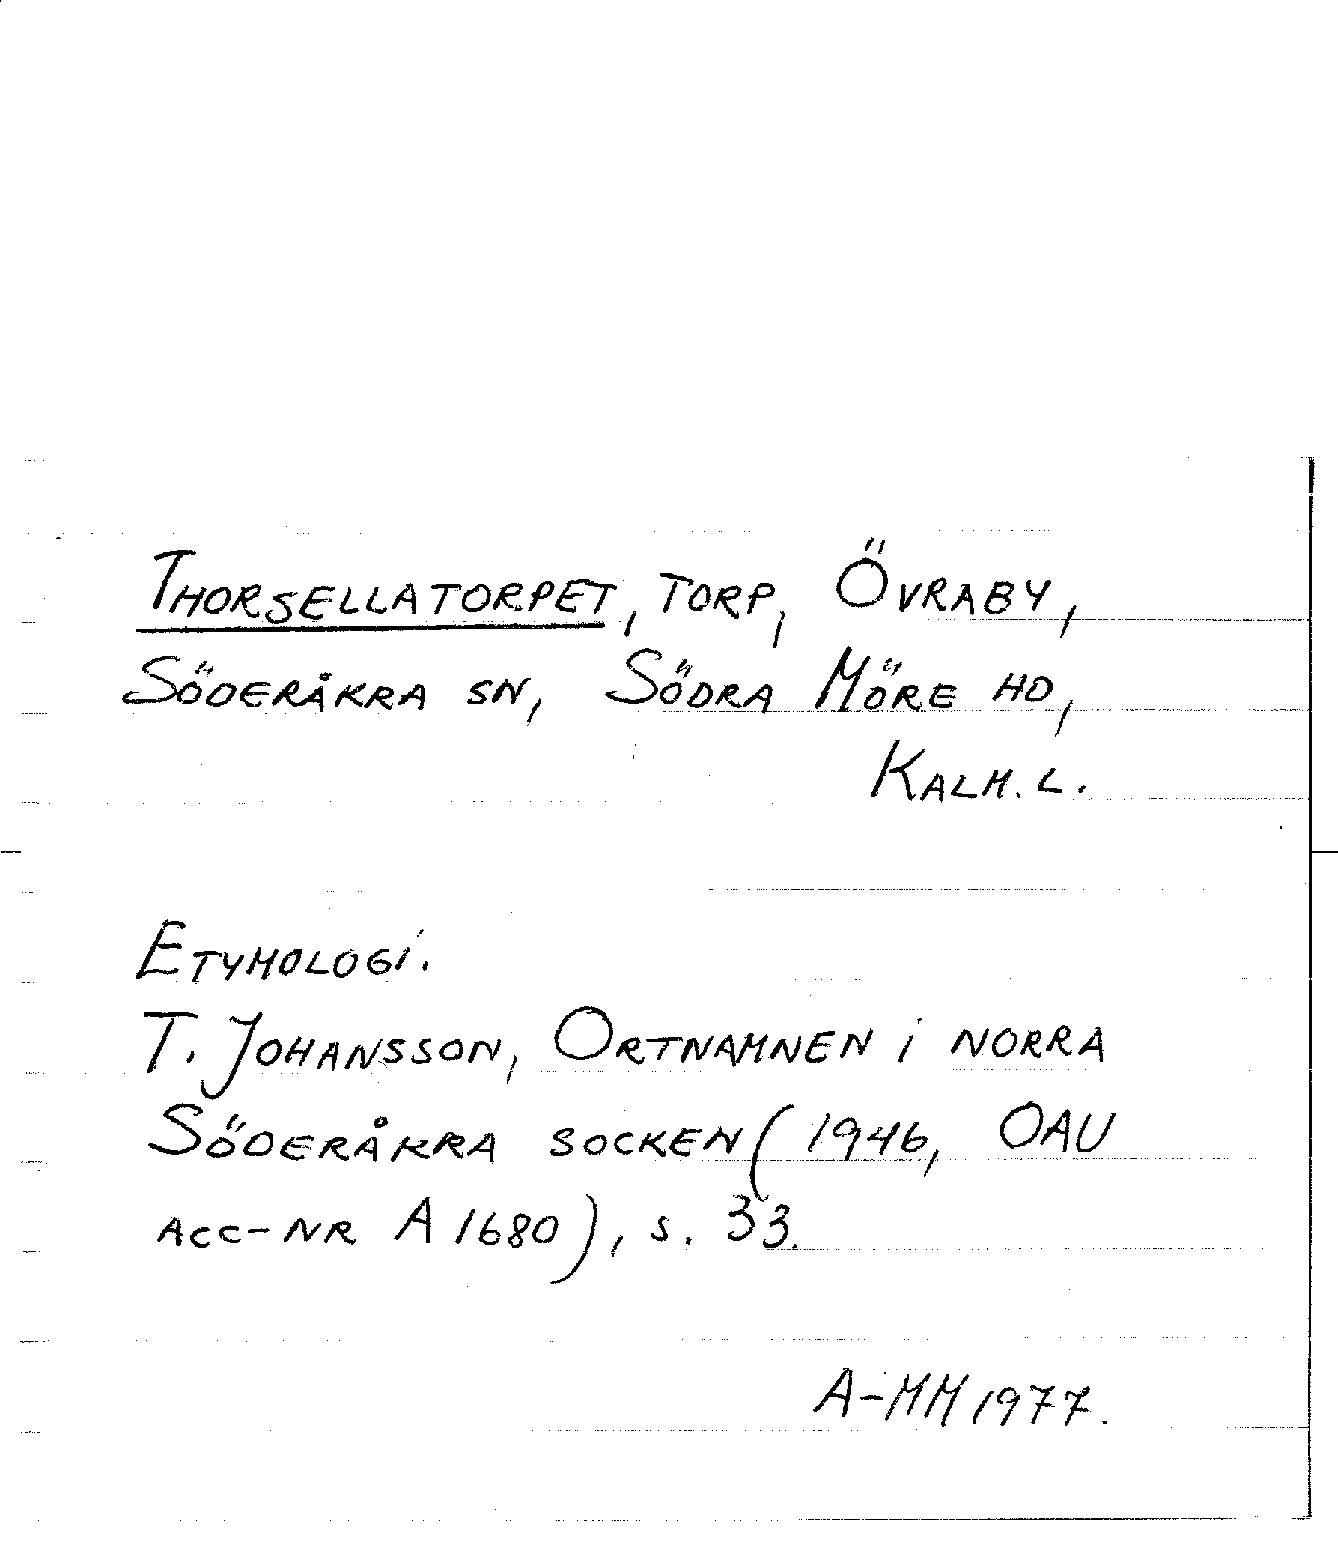 Thorsellatorpet, torp, Övraby,
Söderåkra sn, Södra Möre hd,
Kalm. l.
Etymologi.
T. Johansson, Ortnamnen i norra
Söderåkra socken (1946, OAU
acc-nr A 1680), s. 33.
A-MM 1977.